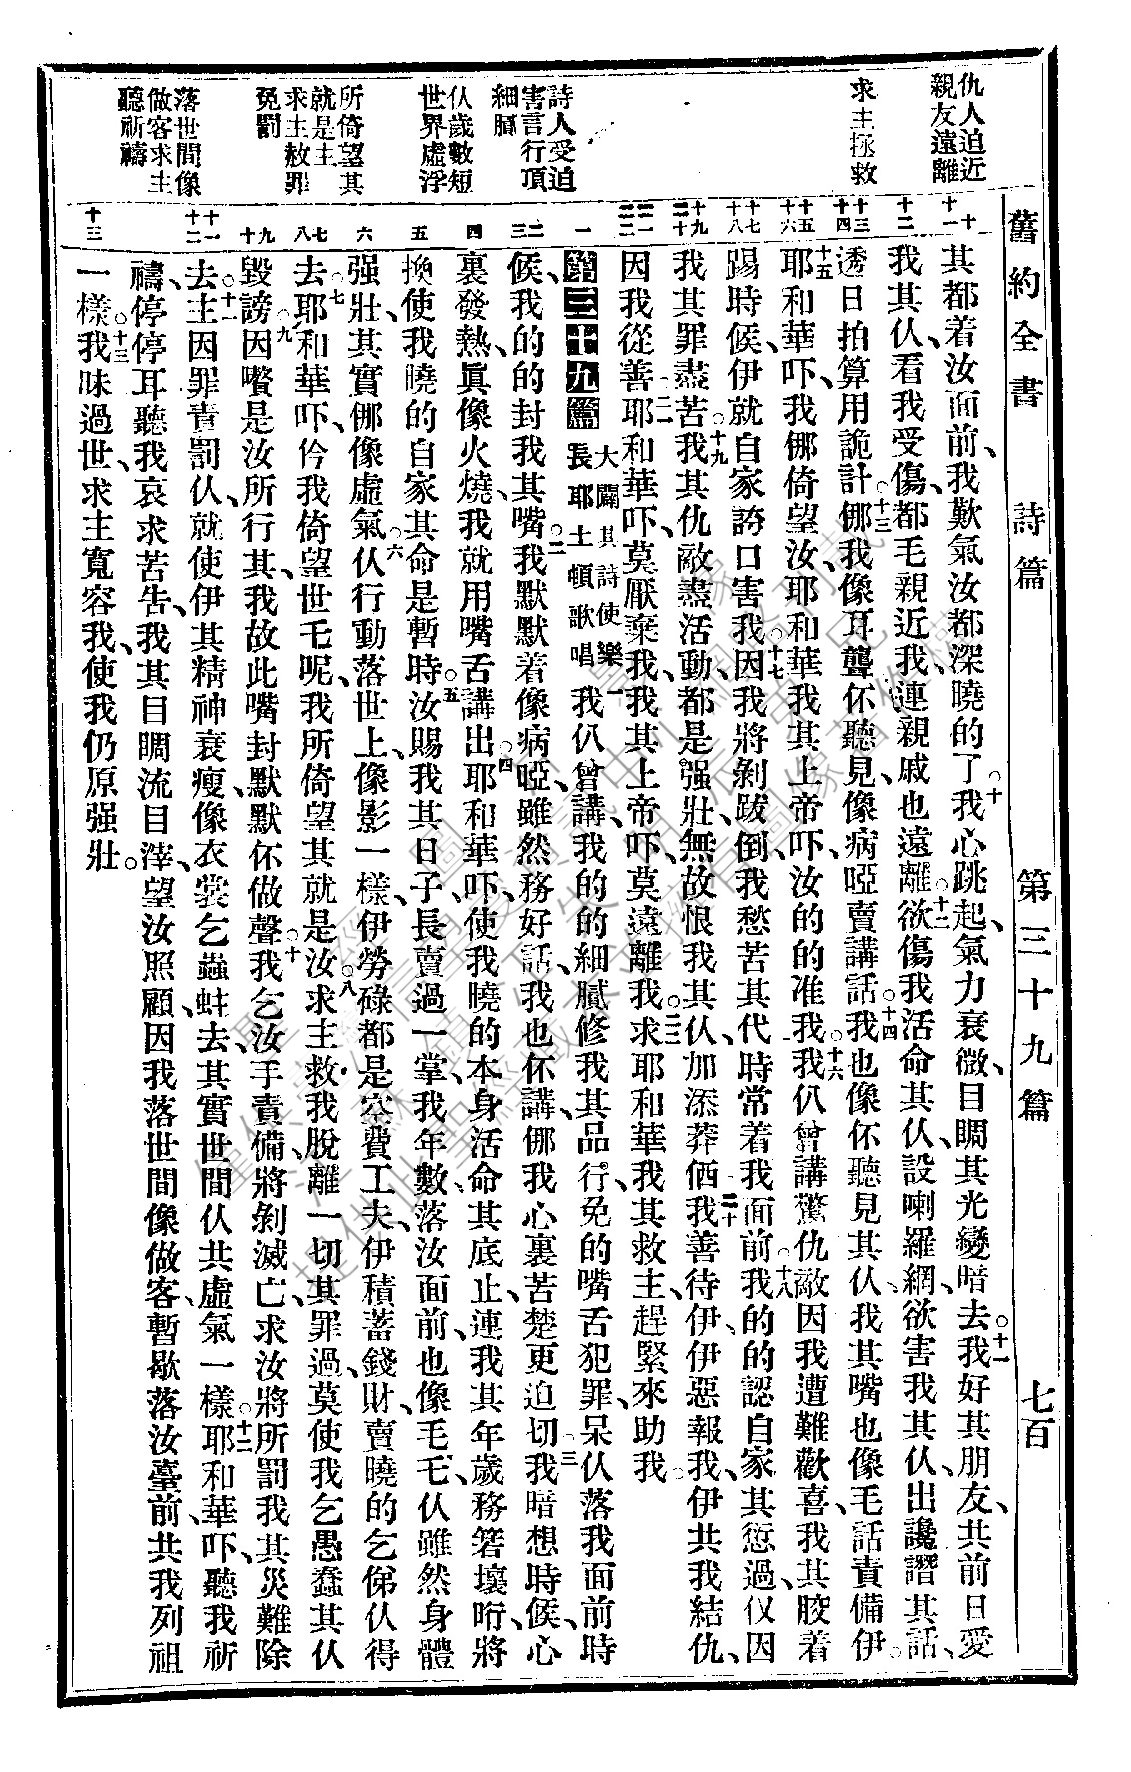 舊約全書 詩篇 第三十九篇 七百
仇人迫近
親友遠離
求主拯救
詩人受迫
害言行頂
細膩
仈歲數短
世界虛浮
所倚望其
就是主
求主赦罪
免罰
落世間像
做客求主
聽祈禱
十 十一
十二
十三 十四
十五 十六
十七 十八
十九 二十
二一 二二
一
二 三
四
五
六
七 八
九 十
十一 十二
十三
其都着汝面前、我歎氣汝都深曉的了○十我心跳起、氣力衰微、目睭其光變暗去○十一我好其朋友、共前日愛
我其仈、看我受傷、都毛親近我、連親戚也遠離○十二欲傷我活命其仈、設喇羅網、欲害我其仈、出讒譖其話、
透日拍算用詭計○十三挪我像耳聾伓聽見、像病啞賣講話○十四我也像伓聽見其仈、我其嘴也像毛話責備伊。
○十五耶和華吓、我挪倚望汝、耶和華我其上帝吓、汝的的准我○十六我仈曾講、驚仇敵因我遭難歡喜、我其骹着
踢時候、伊就自家誇口害我○十七因我將剝跋倒、我愁苦其代時常着我面前○十八我的的認自家其愆過、仅因
我其罪盡苦○十九我其仇敵盡活動、都是强壯、無故恨我其仈加添莽価○二十我善待伊、伊惡報我、伊共我結仇、
因我從善○二一耶和華吓、莫厭棄我、我其上帝吓、莫遠離我○二二求耶和華我其救主、趕緊來助我○
第三十九篇 大闢其詩使樂長耶土頓歌唱 一我仈曾講、我的的細膩修我其品行、免的嘴舌犯罪、呆仈落我面前時
候、我的的封我其嘴○二我默默着像病啞、雖然務好話、我也伓講、挪我心裏苦楚更迫切○三我暗想時候、心
裏發熱、眞像火燒、我就用嘴舌講出○四耶和華吓、使我曉的本身活命其底止、連我其年歲務箬壞㖏、將
換使我曉的自家其命是暫時○五汝賜我其日子、長賣過一掌、我年數落汝面前也像毛乇、仈雖然身體
强壯、其實挪像虛氣○六仈行動落世上、像影一樣、伊勞碌都是空費工夫、伊積蓄錢財、賣曉的乞俤仈得
去○七耶和華吓、伶我倚望世乇呢、我所倚望其就是汝○八求主救我脫離一切其罪過、莫使我乞愚蠢其仈
毀謗○九因嚽是汝所行其、我故此嘴封默默伓做聲○十我乞汝手責備、將剝滅亡、求汝將所罰我其災難除
去○十一主因罪責罰仈、就使伊其精神衰瘦、像衣裳乞蟲蛀去、其實世間仈共虛氣一樣○十二耶和華吓、聽我祈
禱、停停耳聽我哀求苦告、我其目睭流目滓、望汝照顧、因我落世間像做客、暫歇落汝臺前、共我列祖
一樣○十三我昧過世、求主寬容我、使我仍原强壯。